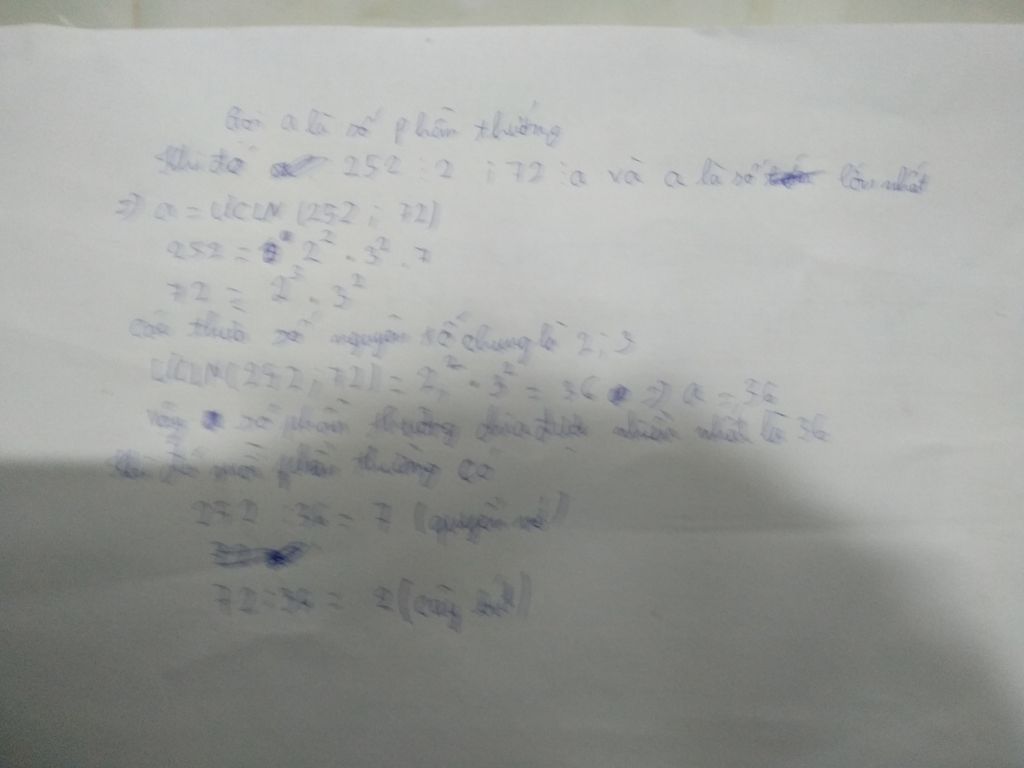 Gọi a là số phần thưởng
Khi đó 252 : 2 ; 72 : a và a là số lớn nhất
=> a = ƯCLN (252 ; 72)
252 = 2² . 3² . 7
72 = 2³ . 3²
Các thừa số nguyên tố chung là 2 ; 3
ƯCLN(252 ; 72) = 2² . 3² = 36 => a = 36
Vậy số phần thưởng chia được nhiều nhất là 36
Khi đó mỗi phần thưởng có
252 : 36 = 7 (quyển vở)
72 : 36 = 2 (cây bút)